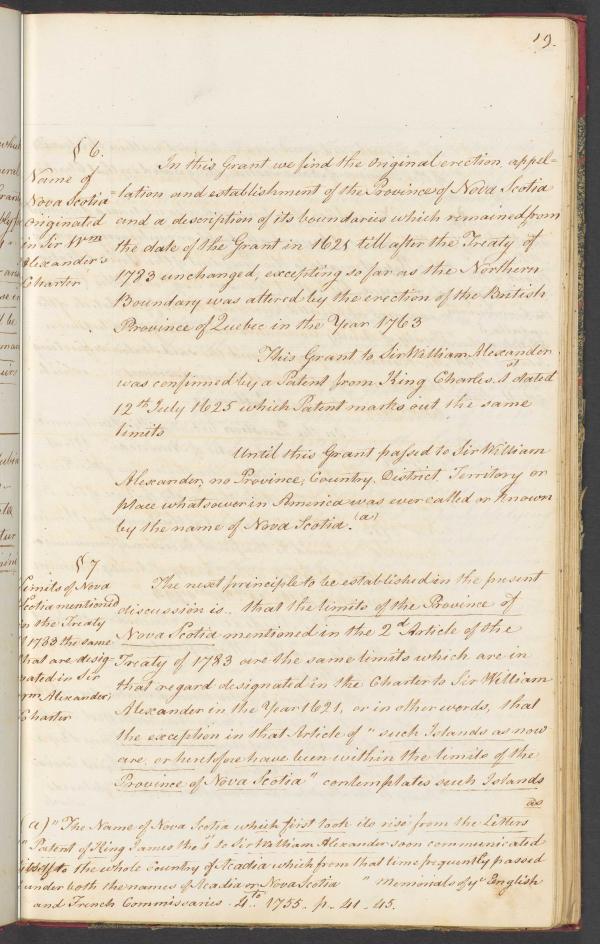 19.
§ 6.
Name of
Nova Scotia
originated
in Sir Wm
Alexander's
Charter
In this Grant we find the original erection, appel=
=lation and establishment of the Province of Nova Scotia
and a description of its boundaries which remained from
the date of the Grant in 1621 till after the Treaty of
1783 unchanged, excepting so far as the Northern
Boundary was altered by the erection of the British
Province of Quebec in the Year 1763
This Grant to Sir William Alexander
was confirmed by a Patent from King Charles 1st dated
12th July 1625 which Patent marks out the same
limits
Until this Grant passed to Sir William
Alexander, no Province, Country, District, Territory or
place whatsoever in America was ever called or known
by the name of Nova Scotia. (a)
§ 7
Limits of Nova
Scotia mentioned
in the Treaty
1783 the same
that are desig-
nated in Sir
Wm Alexander's
Charter
The next principle to be established in the present
discussion is.. that the limits of the Province of
Nova Scotia mentioned in the 2d Article of the
Treaty of 1783 are the same limits which are in
that regard designated in the Charter to Sir William
Alexander in the Year 1621, or in other words, that
the exception in that Article of "such Islands as now
are, or heretofore have been within the limits of the
Province of Nova Scotia" contemplates such Islands
as
(a) "The Name of Nova Scotia which first took its rise from the Letters
"Patent of King James the 1st to Sir William Alexander soon communicated
itself to the whole Country of Acadia which from that time frequently passed
under both the names of Acadia or Nova Scotia " Memorials of ye English
and French Commissaries. 4to 1755. p. 41_45.